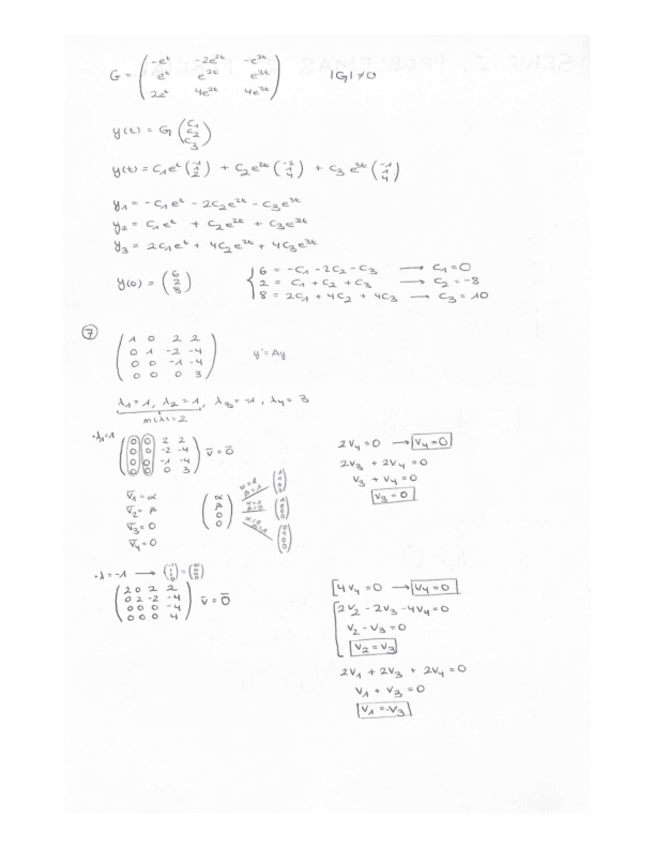 G = ( -e^t -2e^2t -e^3t
e^t e^2t e^3t
2e^t 4e^2t 4e^3t ) |G| ≠ 0
y(t) = G (C1 C2 C3)
y(t) = C1 e^t (-1 1 2) + C2 e^2t (-2 1 4) + C3 e^3t (-1 1 4)
y1 = -C1 e^t - 2C2 e^2t - C3 e^3t
y2 = C1 e^t + C2 e^2t + C3 e^3t
y3 = 2C1 e^t + 4C2 e^2t + 4C3 e^3t
y(0) = (6 2 8) { 6 = -C1 - 2C2 - C3 → C1 = 0
2 = C1 + C2 + C3 → C2 = -8
8 = 2C1 + 4C2 + 4C3 → C3 = 10
7
( 1 0 2 2
0 1 -2 -4
0 0 -1 -4
0 0 0 3 ) y' = Ay
λ1 = 1, λ2 = 1, λ3 = -1, λ4 = 3
m(λ) = 2
• λ1 = 1
( 0 0 2 2
0 0 -2 -4
0 0 -1 -4
0 0 0 3 ) v̄ = 0̄
2v4 = 0 → v4 = 0
2v3 + 2v4 = 0
v3 + v4 = 0
v3 = 0
v̄1 = α
v̄2 = β
v̄3 = 0
v̄4 = 0
(α β 0 0)
α=1 β=1 (1 1 0 0)
α=1 β=0 (1 0 0 0)
α=0 β=1 (0 1 0 0)
• λ = -1 →
( 2 0 2 2
0 2 -2 -4
0 0 0 -4
0 0 0 4 ) v̄ = 0̄
4v4 = 0 → v4 = 0
2v2 - 2v3 - 4v4 = 0
v2 - v3 = 0
v2 = v3
2v1 + 2v3 + 2v4 = 0
v1 + v3 = 0
v1 = -v3